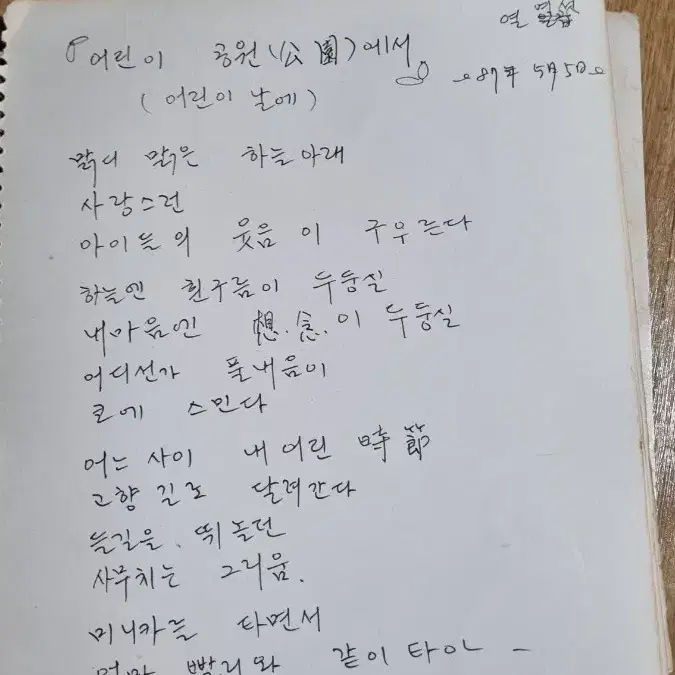 열
어린이 공원(公園)에서
87年 5月 5日
(어린이 날에)
맑디 맑은 하늘아래
사랑스런
아이들의 웃음이 구우른다
하늘엔 흰구름이 두둥실
내마음엔 想.念.이 두둥실
어디선가 풀내음이
코에 스민다
어느 사이 내 어린 時節
고향 길로 달려간다
들길을. 뛰놀던
사무치는 그리움.
미니카를 타면서
엄마 빨리와 같이 타아 -